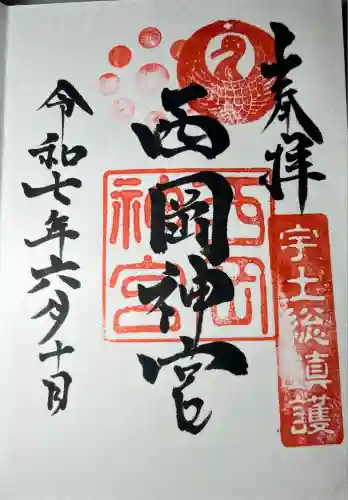 奉拝
宇土総真護
西岡神宮
西岡
神宮
令和七年六月十日